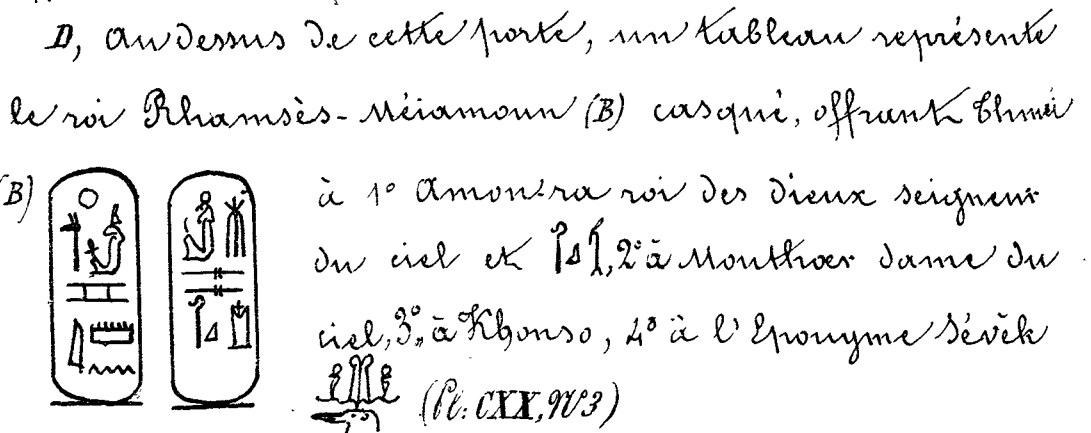 D, au dessus de cette porte, un tableau représente
le roi Rhamsès-Méiamoun (B) casqué, offrant Thmei
(B)
à 1° Amon-ra roi des dieux seigneur
du ciel et , 2° à Mouth dame du
ciel, 3°, à Khonso, 4° à l'Eponyme Sévèk
(Pl: CXX, N°3)